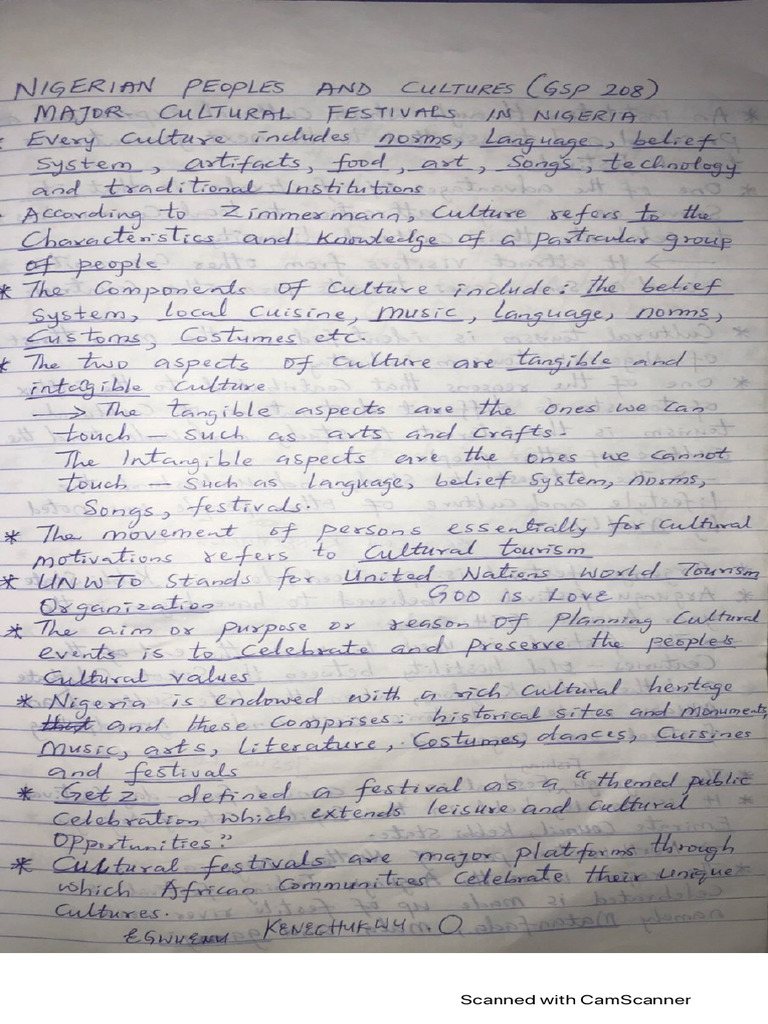 NIGERIAN PEOPLES AND CULTURES (GSP 208)
MAJOR CULTURAL FESTIVALS IN NIGERIA
Every culture includes norms, language, belief
system, artifacts, food, art, songs, technology
and traditional Institutions
According to Zimmermann, Culture refers to the
Characteristics and knowledge of a particular group
of people
* The Components of culture include: the belief
system, local cuisine, music, language, norms,
Customs, Costumes etc.
* The two aspects of culture are tangible and
intagible culture
→ The tangible aspects are the ones we can
touch - such as arts and crafts.
The Intangible aspects are the ones we cannot
touch - such as language, belief system, norms,
Songs, festivals.
* The movement of persons essentially for cultural
motivations refers to cultural tourism
* UNWTO stands for United Nations World Tourism
GOD IS LOVE
Organization
* The aim or purpose or reason of planning cultural
events is to celebrate and preserve the people's
Cultural values
* Nigeria is endowed with a rich cultural heritage
that and these comprises: historical sites and monuments,
music, arts, literature, Costumes, dances, Cuisines
and festivals
* Getz defined a festival as a "themed public
celebration which extends leisure and cultural
opportunities."
* Cultural festivals are major platforms through
which African Communities celebrate their unique
cultures.
EGWUENU KENECHUKWU .O
Scanned with CamScanner